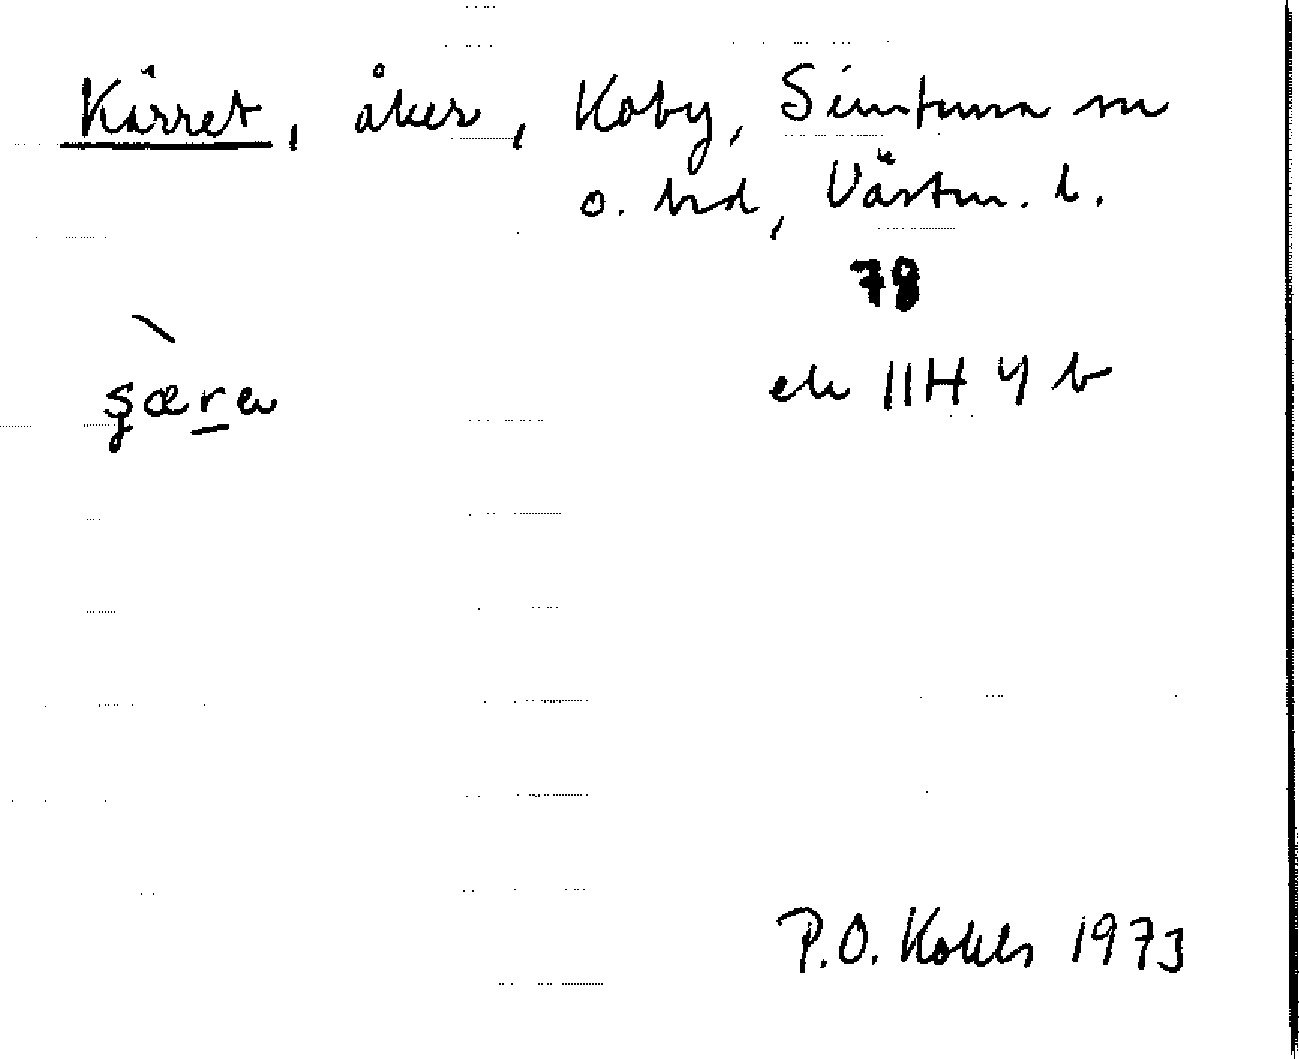 Kärret, åker, Koby, Simtuna sn
o. hrd, Västm. l.
78
ek 11H 4 b
şære
P.O. Kokls 1973